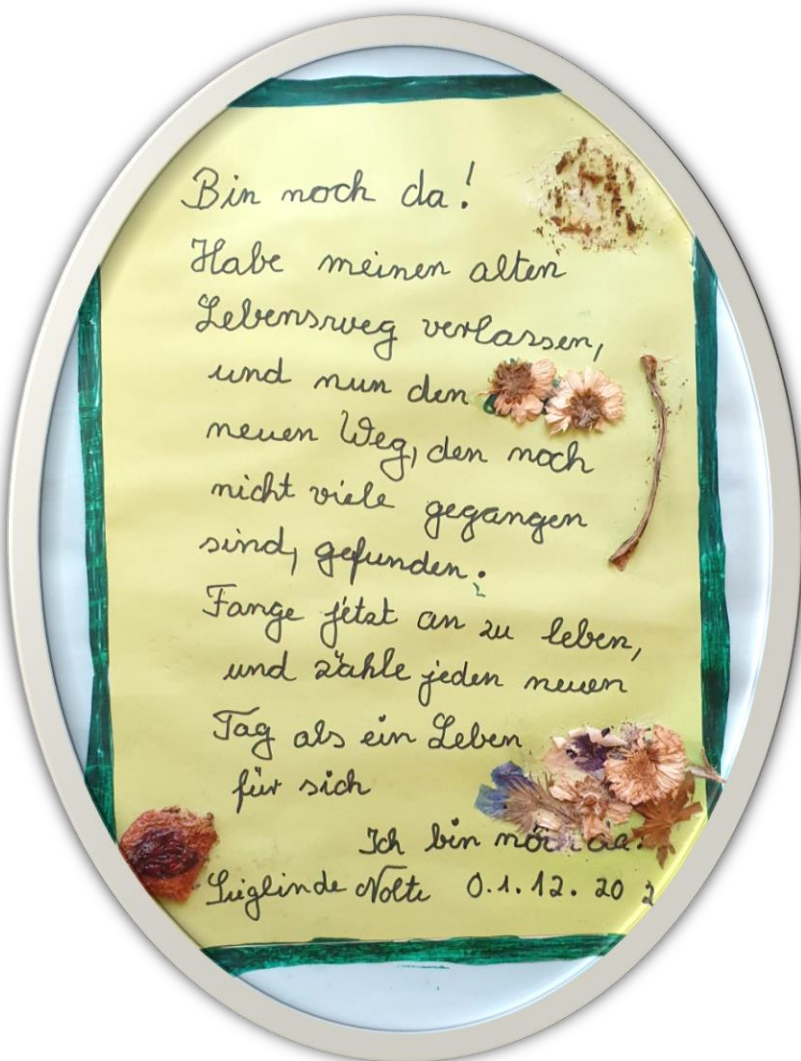 Bin noch da!
Habe meinen alten
Lebensweg verlassen,
und nun den
neuen Weg, den noch
nicht viele gegangen
sind, gefunden.
Fange jetzt an zu leben,
und zähle jeden neuen
Tag als ein Leben
für sich
Ich bin noch da.
Sieglinde Nolte 0.1.12.202